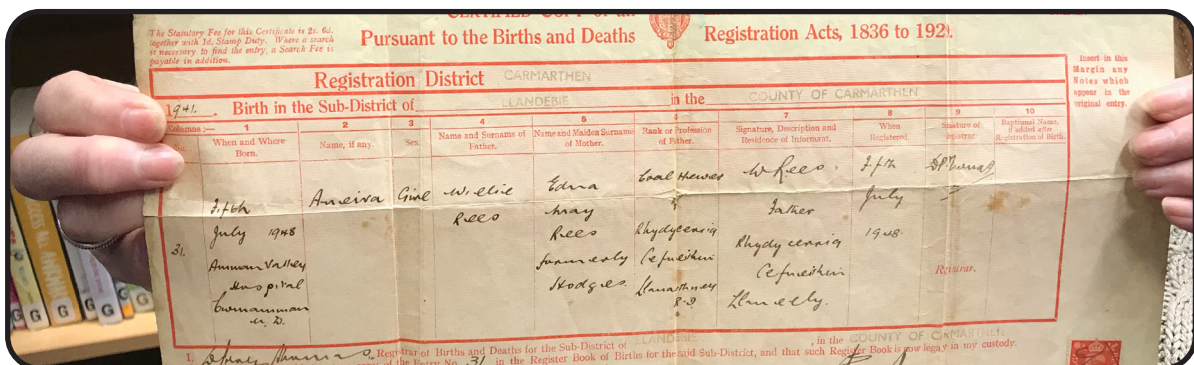 CERTIFIED COPY of an
The Statutory Fee for this Certificate is 2s. 6d.
together with 1d. Stamp Duty. Where a search
is necessary to find the entry, a Search Fee is
payable in addition.
Pursuant to the Births and Deaths Registration Acts, 1836 to 1929.
Registration District CARMARTHEN
1941. Birth in the Sub-District of LLANDEBIE in the COUNTY OF CARMARTHEN
Insert in this
Margin any
Notes which
appear in the
original entry.
Columns:— 1 2 3 4 5 6 7 8 9 10
No. When and Where
Born.
Name, if any.
Sex.
Name and Surname of
Father.
Name and Maiden Surname
of Mother.
Rank or Profession
of Father.
Signature, Description and
Residence of Informant.
When
Registered.
Signature of
Registrar.
Baptismal Name,
if added after
Registration of Birth.
31.
Fifth
July 1948
Amman Valley
Hospital
Cwmamman
U.D.
Aneira
Girl
Willie
Rees
Edna
May
Rees
formerly
Hodges.
Coal Hewer
Rhydycerrig
Cefneithin
Llanarthney
R.D.
W Rees.
Father
Rhydycerrig
Cefneithin
Llanelly.
Fifth
July
1948.
Registrar.
I, Registrar of Births and Deaths for the Sub-District of LLANDEBIE, in the COUNTY OF CARMARTHEN
of the Entry No. 31 in the Register Book of Births for the said Sub-District, and that such Register Book is now legally in my custody.
ACCESS ALL
G
G
G
G